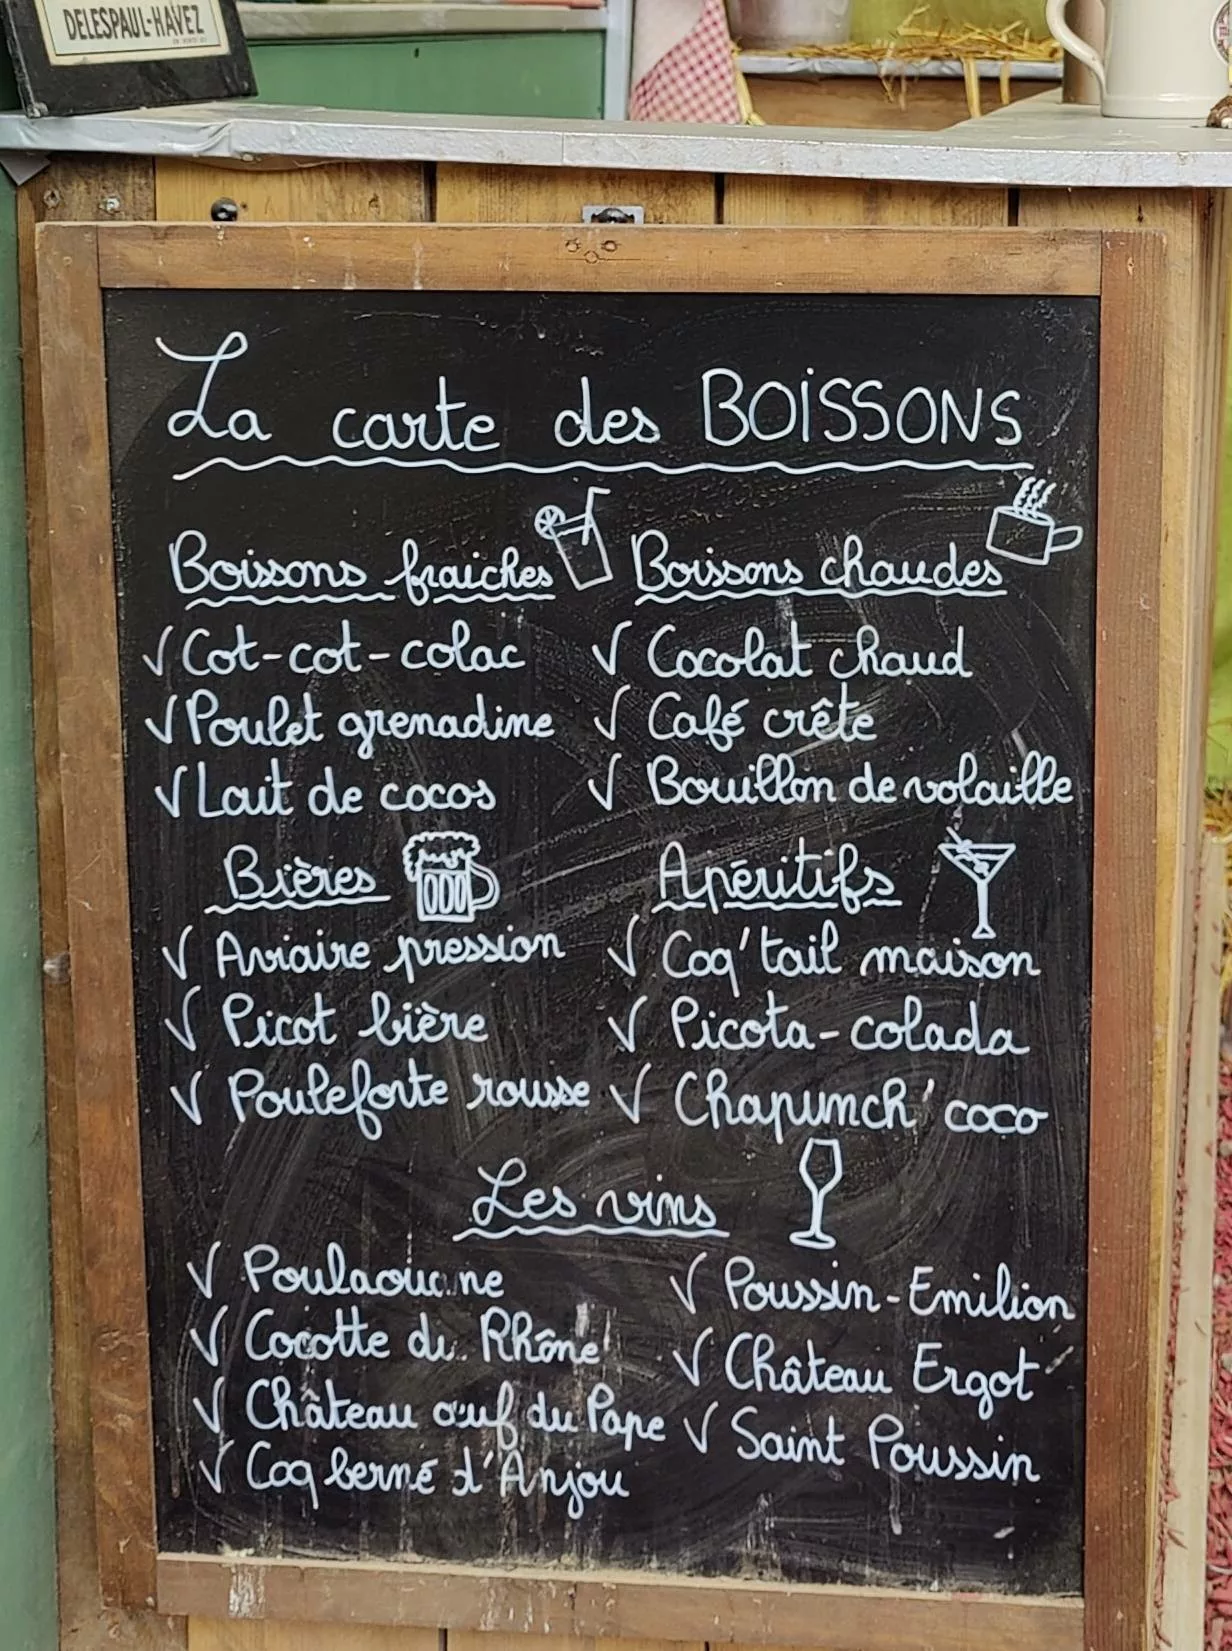 DELESPAUL-HAVEZ
La carte des BOISSONS
Boissons fraiches
Cot-cot-colac
Poulet grenadine
Lait de cocos
Boissons chaudes
Cocolat chaud
Café crête
Bouillon de volaille
Bières
Aviaire pression
Picot bière
Pouleforte rousse
Apéritifs
Coq'tail maison
Picota-colada
Chapunch' coco
Les vins
Poulaouane
Cocotte du Rhône
Château œuf du Pape
Coq berné d'Anjou
Poussin-Emilion
Château Ergot
Saint Poussin